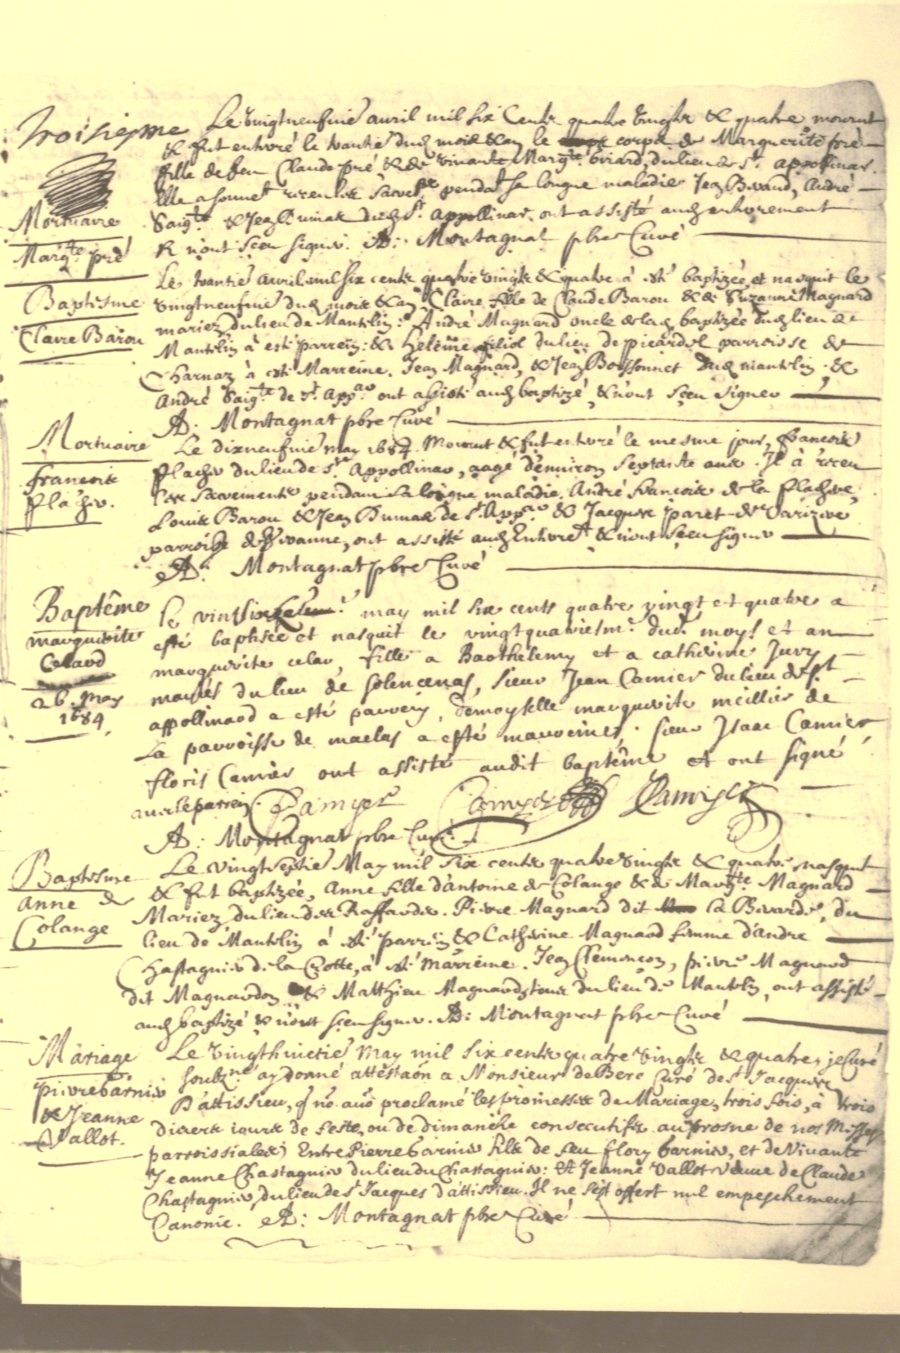 Troisiesme
Le vingtneufuie avril mil six Cents quatre vingts & quatre mourut
& fut enterré le trantie dud mois & an le corps de Marguerite pré
fille de feu Claude pré, & de vivante Margte Girard, du lieu de St Appollinar.
Elle a receu les Sacrets pendat sa longue maladie Jean Bivaud, André
Mortuaire
Saigte & Jean Dumas dud St Appollinar ont assisté aud enterement
& n'ont sceu signer. A: Montagnat pbre Curé
Margte pré
Le trantie Avril mil six cents quatre vingts & quatre à esté baptizée, et nasquit le
Baptesme
vingtneufuie dud mois & an Claire fille de Claude Barou & de Suzanne Magnard
mariez du lieu de Mantelin: André Magnard oncle de lad baptizée dud lieu de
Claire Barou
Mantelin à esté parrein: & Heleine filiol du lieu de picardel parroisse de
Charnas à esté Marreine. Jean Magnard, & Jean Boissonnet dud mantelin &
André Saigte de St Appar ont assisté aud baptizé, & n'ont sceu signer
A: Montagnat pbre Curé
Mortuaire
Le dixneufuie may 1684. Mourut & fut enterré le mesme jour, francois
francois
flachier du lieu de St Appollinar, aagé d'enuiron septante ans. Il à receu
flachier.
les Sacrements pendant sa longue maladie. André francois de la flachere,
Louis Barou & Jean Dumas de St Appar & Jacques paret de Varizive
parroisse de Vivanne, ont assisté aud Enteret & n'ont sceu signer
A: Montagnat pbre Curé
Baptême
Le vintsixsieme may mil six cents quatre vingt et quatre a
marguerite
esté baptisée et nasquit le vingtquatriesme dud moys et an
Celard
marguerite celar, fille a Barthelemy et a catherine Jury
26. may
mariés du lieu de solencenas, sieur Jean Camier du lieu de St
1684,
appollinard a esté parrein, Demoyselle marguerite meillier de
La parroisse de maclas a esté marreine. sieur Isaac Camier
floris Camier ont assisté audit baptême et ont signé
avec le parrein. Camyer Camyer Camyer
A: Montagnat pbre Curé
Baptesme
Le vingtseptie May mil six cents quatre vingts & quatre nasquit
anne de
& fut baptizée, Anne fille d'antoine de Colange & de Margte Magnard
Colange
Mariez du lieu des Raffardes. Pierre Magnard dit La Bivarde, du
lieu de Mantelin à esté parrein & Catherine Magnard femme d'andré
Chastagnier de la Crotte, à esté marreine. Jean Clemencon, pierre Magnard
dit Magnardon & Matthieu Magnard tous du lieu de Mantelin, ont assisté
aud baptizé & n'ont sceu signer. A: Montagnat pbre Curé
Mariage
Le vingthuictie May mil six cents quatre vingts & quatre, je Curé
pierre barnier
soubzné ay donné attestaon a Monsieur de Bere Curé de St Jacques
& Jeanne
D'attissieu, q no auo proclamé les promesses de Mariage trois fois, à trois
Vallot.
divers jours de feste, ou de dimanche consecutifs au prosne de nos Messes
parroissiales, Entre Pierre barnier fils de feu flory barnier, et de vivante
Jeanne Chastagnier du lieu du Chastagnier: Et Jeanne Vallot veuue de Claude
Chastagnier, du lieu de St Jacques d'attissieu. Il ne s'est offert nul empeschement
Canonic. A: Montagnat pbre Curé